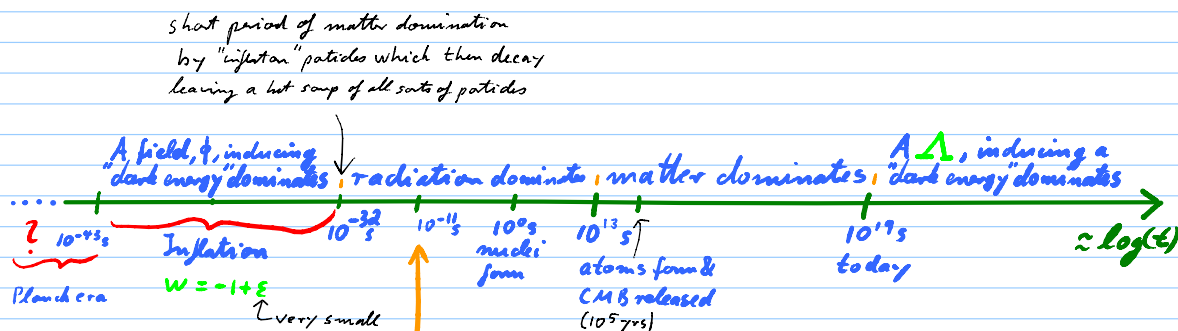 short period of matter domination
by "inflaton" paticles which then decay
leaving a hot soup of all sorts of particles
A field, φ, inducing
"dark energy" dominates
radiation dominates
matter dominates
A Λ, inducing a
"dark energy" dominates
?
10⁻⁴³s
Planck era
Inflation
w = -1+ε
very small
10⁻³²s
10⁻¹¹s
10⁰s
nuclei
form
10¹³s
atoms form &
CMB released
(10⁵yrs)
10¹⁷s
today
≃ log(t)